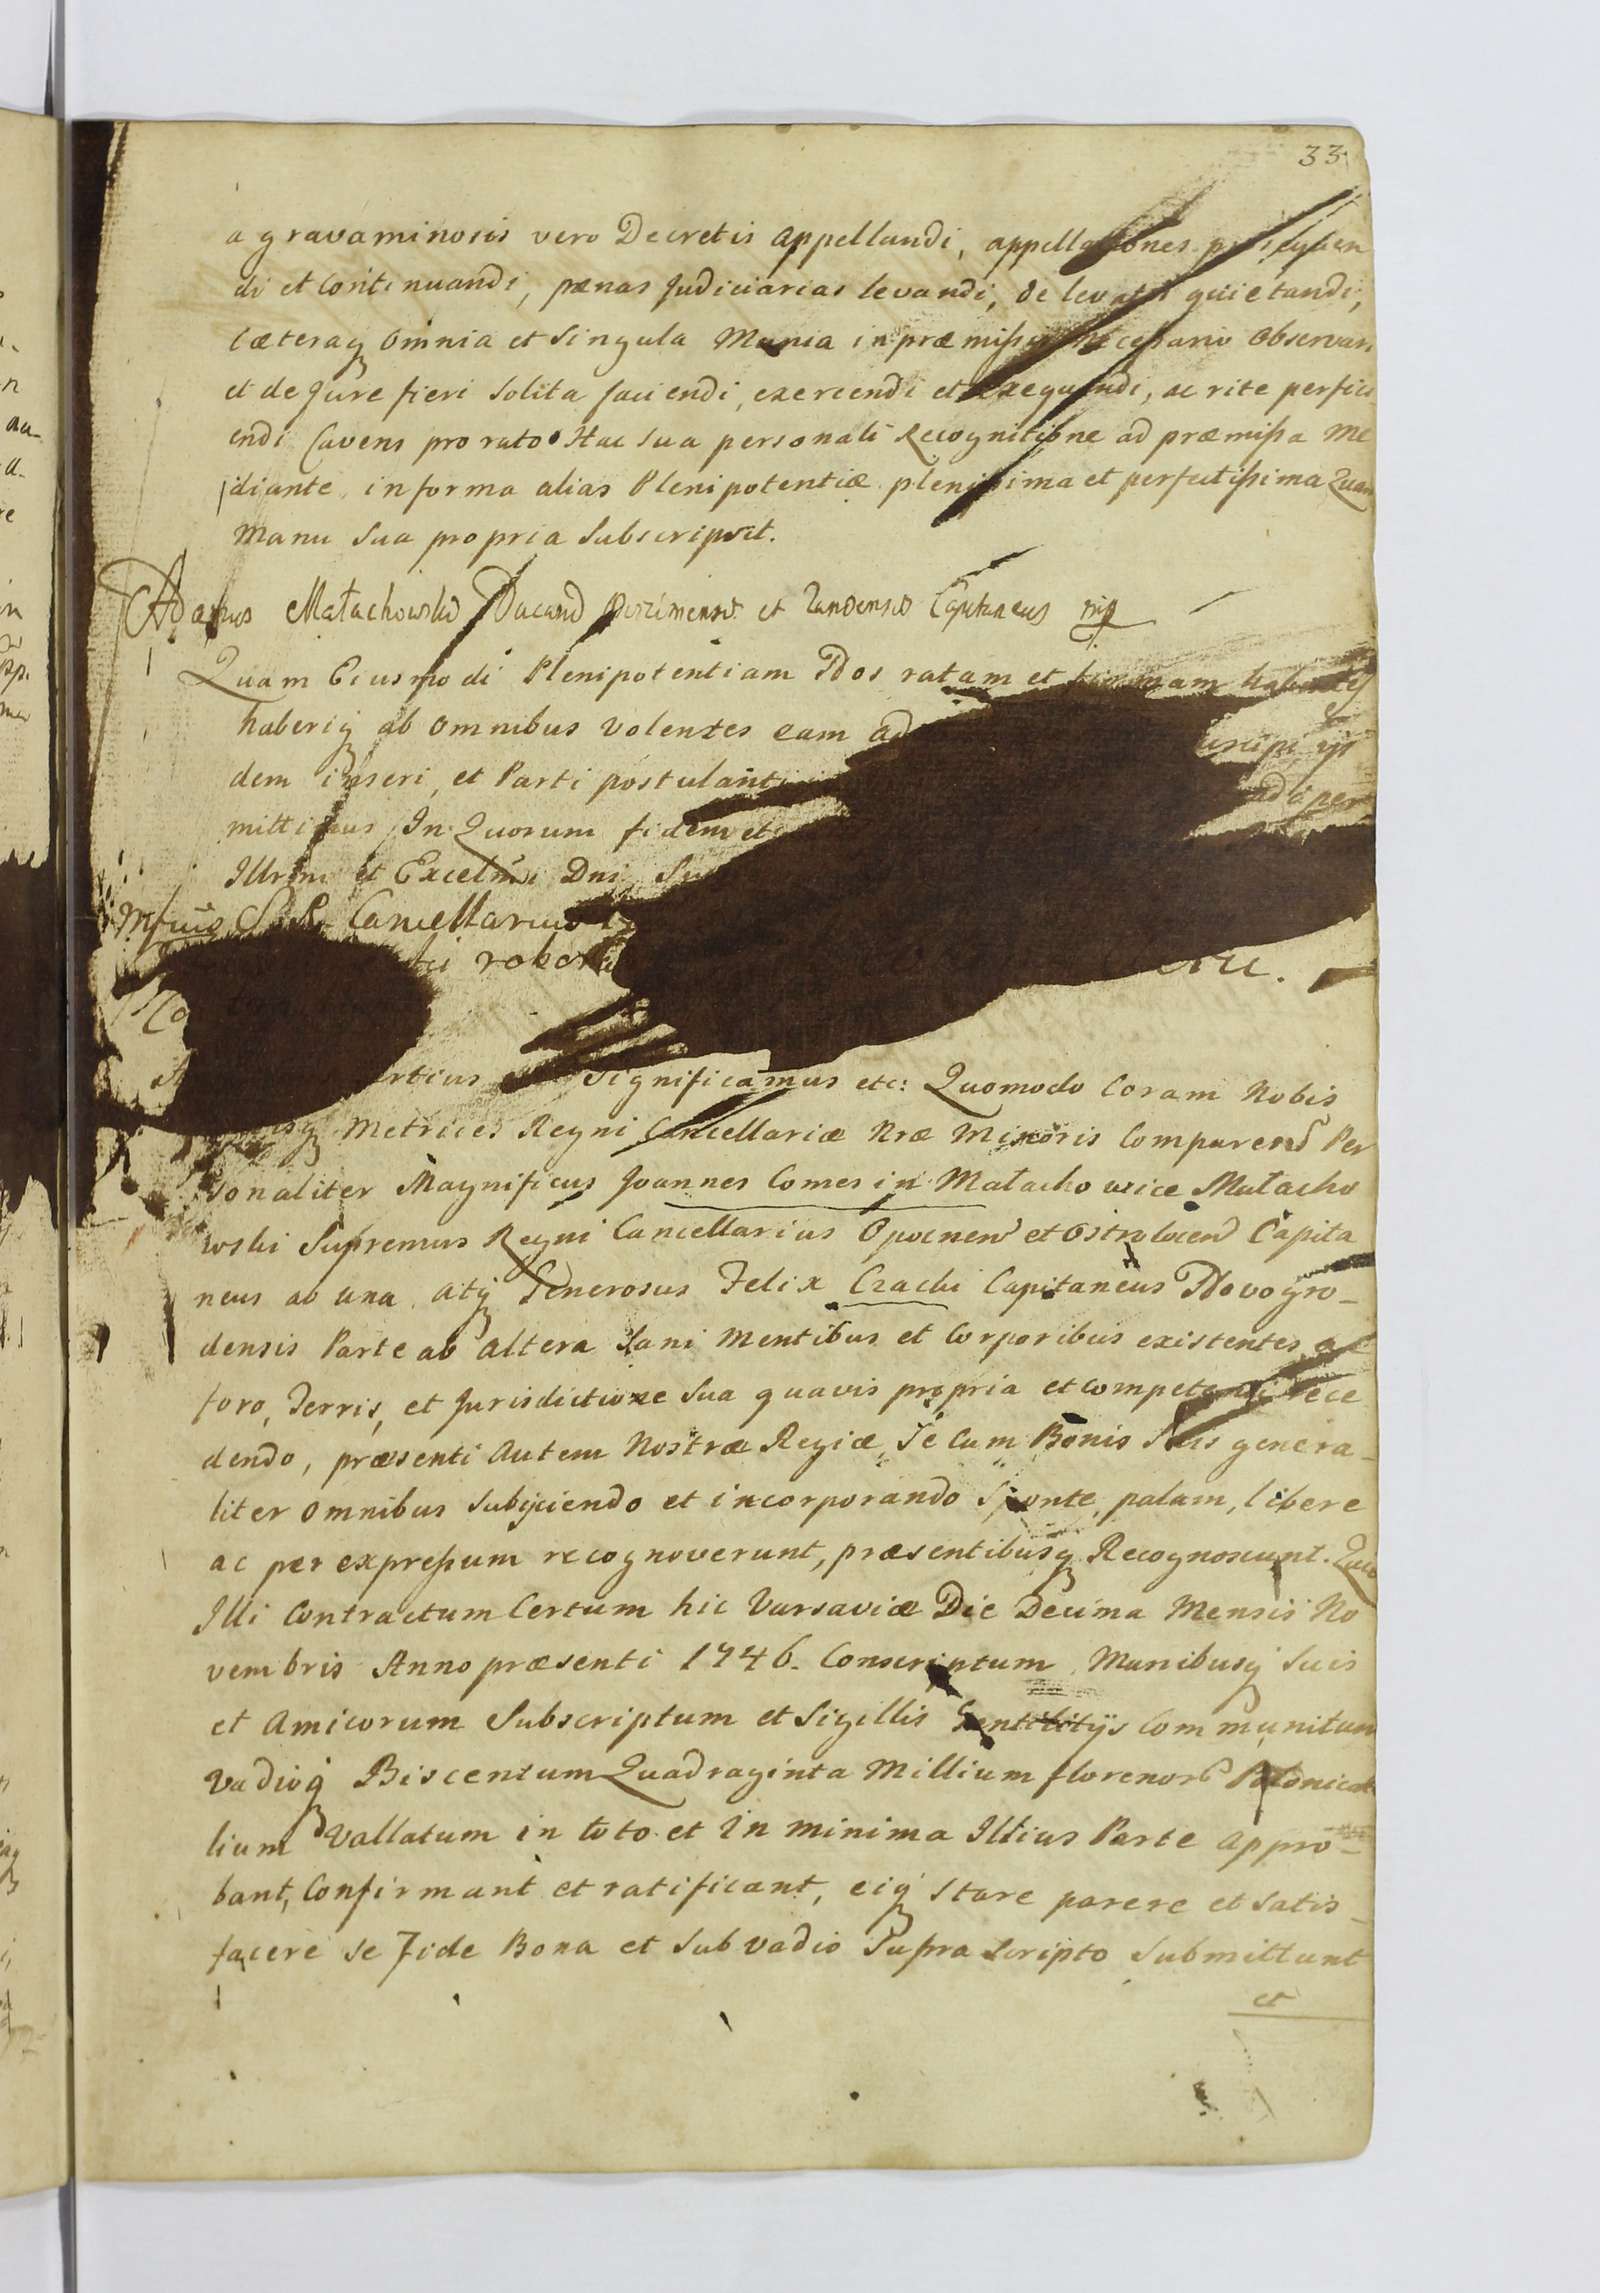 33
a gravaminosis vero Decretis appellandi, appellationes
di et continuandi, pœnas Judiciarias levandi, de levatis quietandi,
cæteraq omnia et singula Munia in præmissis necessario observari
et de Jure fieri solita faciendi, exercendi et exequendi, ac rite perfici
endi Cavens pro rato Hac sua personali Recognitione ad præmissa Me
diante, in forma alias Plenipotentiæ plenissima et perfectissima Quam
Manu sua propria subscripsit.
Adamus Małachowski et Capitaneus mp
Quam Eiusmodi Plenipotentiam Nos ratam et firmam habentes
haberiq ab omnibus volentes eam ad
dem inseri, et Parti postulanti per
mittimus. In Quorum fidem et
Illrmi et Excelmi Dni
S. R. Cancellarius
robor
rtius significamus etc: Quomodo Coram Nobis
Metrices Regni Cancellariæ Nræ Minoris Comparend Per
sonaliter Magnificus Joannes Comes in Małachowice Małacho
wski Supremus Regni Cancellarius Opocnen et Ostrolocen Capita
neus ab una, atq Generosus Felix Czacki Capitaneus Novogro-
densis Parte ab altera sani Mentibus et Corporibus existentes, ac
foro, Terris, et Jurisdictione sua quavis propria et competenti rece
dendo, præsenti autem Nostræ Regiæ, se cum Bonis suis genera-
liter omnibus subijciendo et incorporando sponte, palam, libere
ac per expressum recognoverunt, præsentibusq Recognoscunt. Quia
Illi Contractum Certum hic Varsaviæ Die Decima Mensis No
vembris Anno præsenti 1746. Conscriptum, Manibusq suis
et Amicorum subscriptum et sigillis Gentilitijs Communitum
Vadioq Biscentum Quadraginta Millium florenor Polonica
lium Vallatum in toto et in minima Illius Parte appro-
bant, Confirmant et ratificant, eiq stare parere et satis-
facere se Fide Bona et sub vadio supra scripto submittunt
et